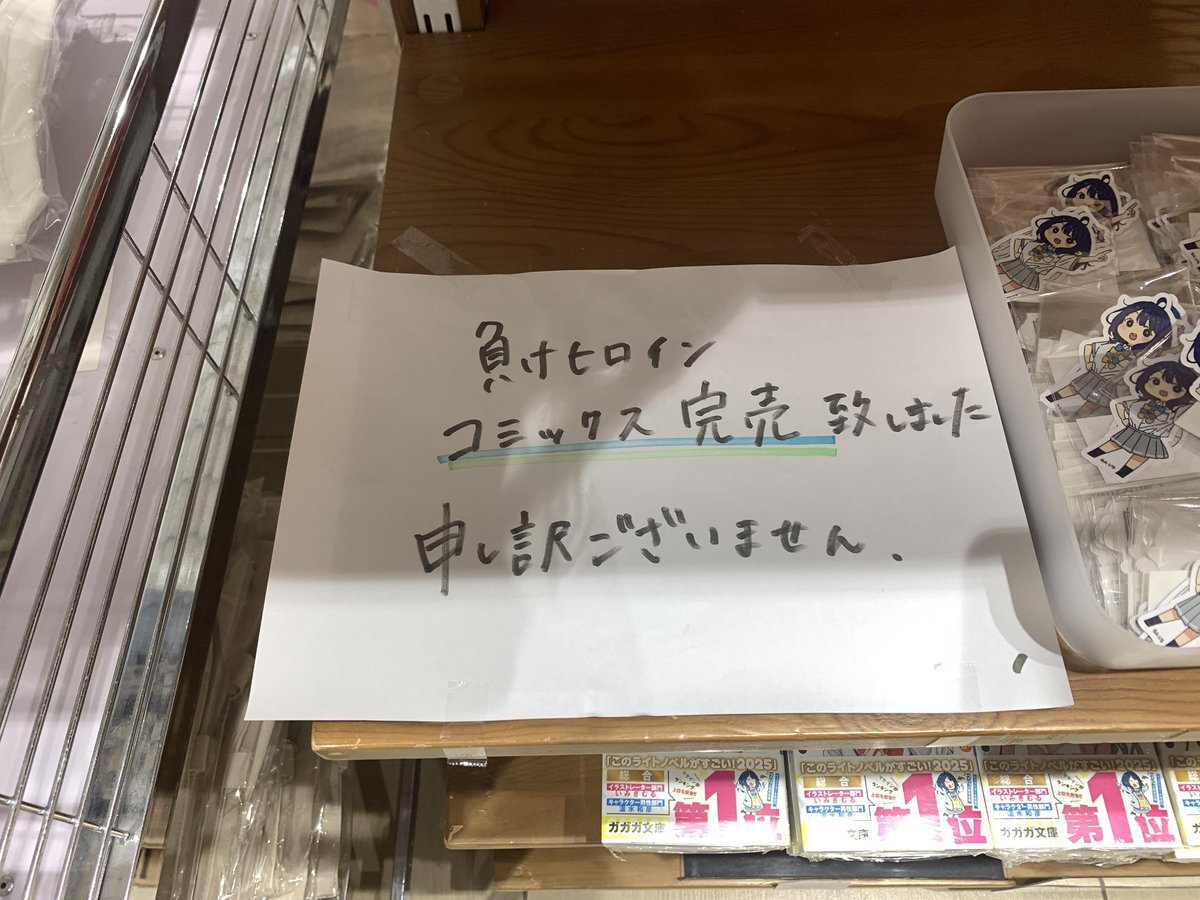 負けヒロイン
コミックス 完売 致しました
申し訳ございません.
「このライトノベルがすごい!2025」
総合
イラストレーター部門
いみぎむる
キャラクター男性部門
温水和彦
ガガガ文庫
第1位
「このライトノベルがすごい!2025」
総合
イラストレーター部門
いみぎむる
キャラクター男性部門
温水和彦
文庫
第1位
「このライトノベルがすごい!2025」
総合
イラストレーター部門
いみぎむる
キャラクター男性部門
温水和彦
ガガガ文庫
第1位